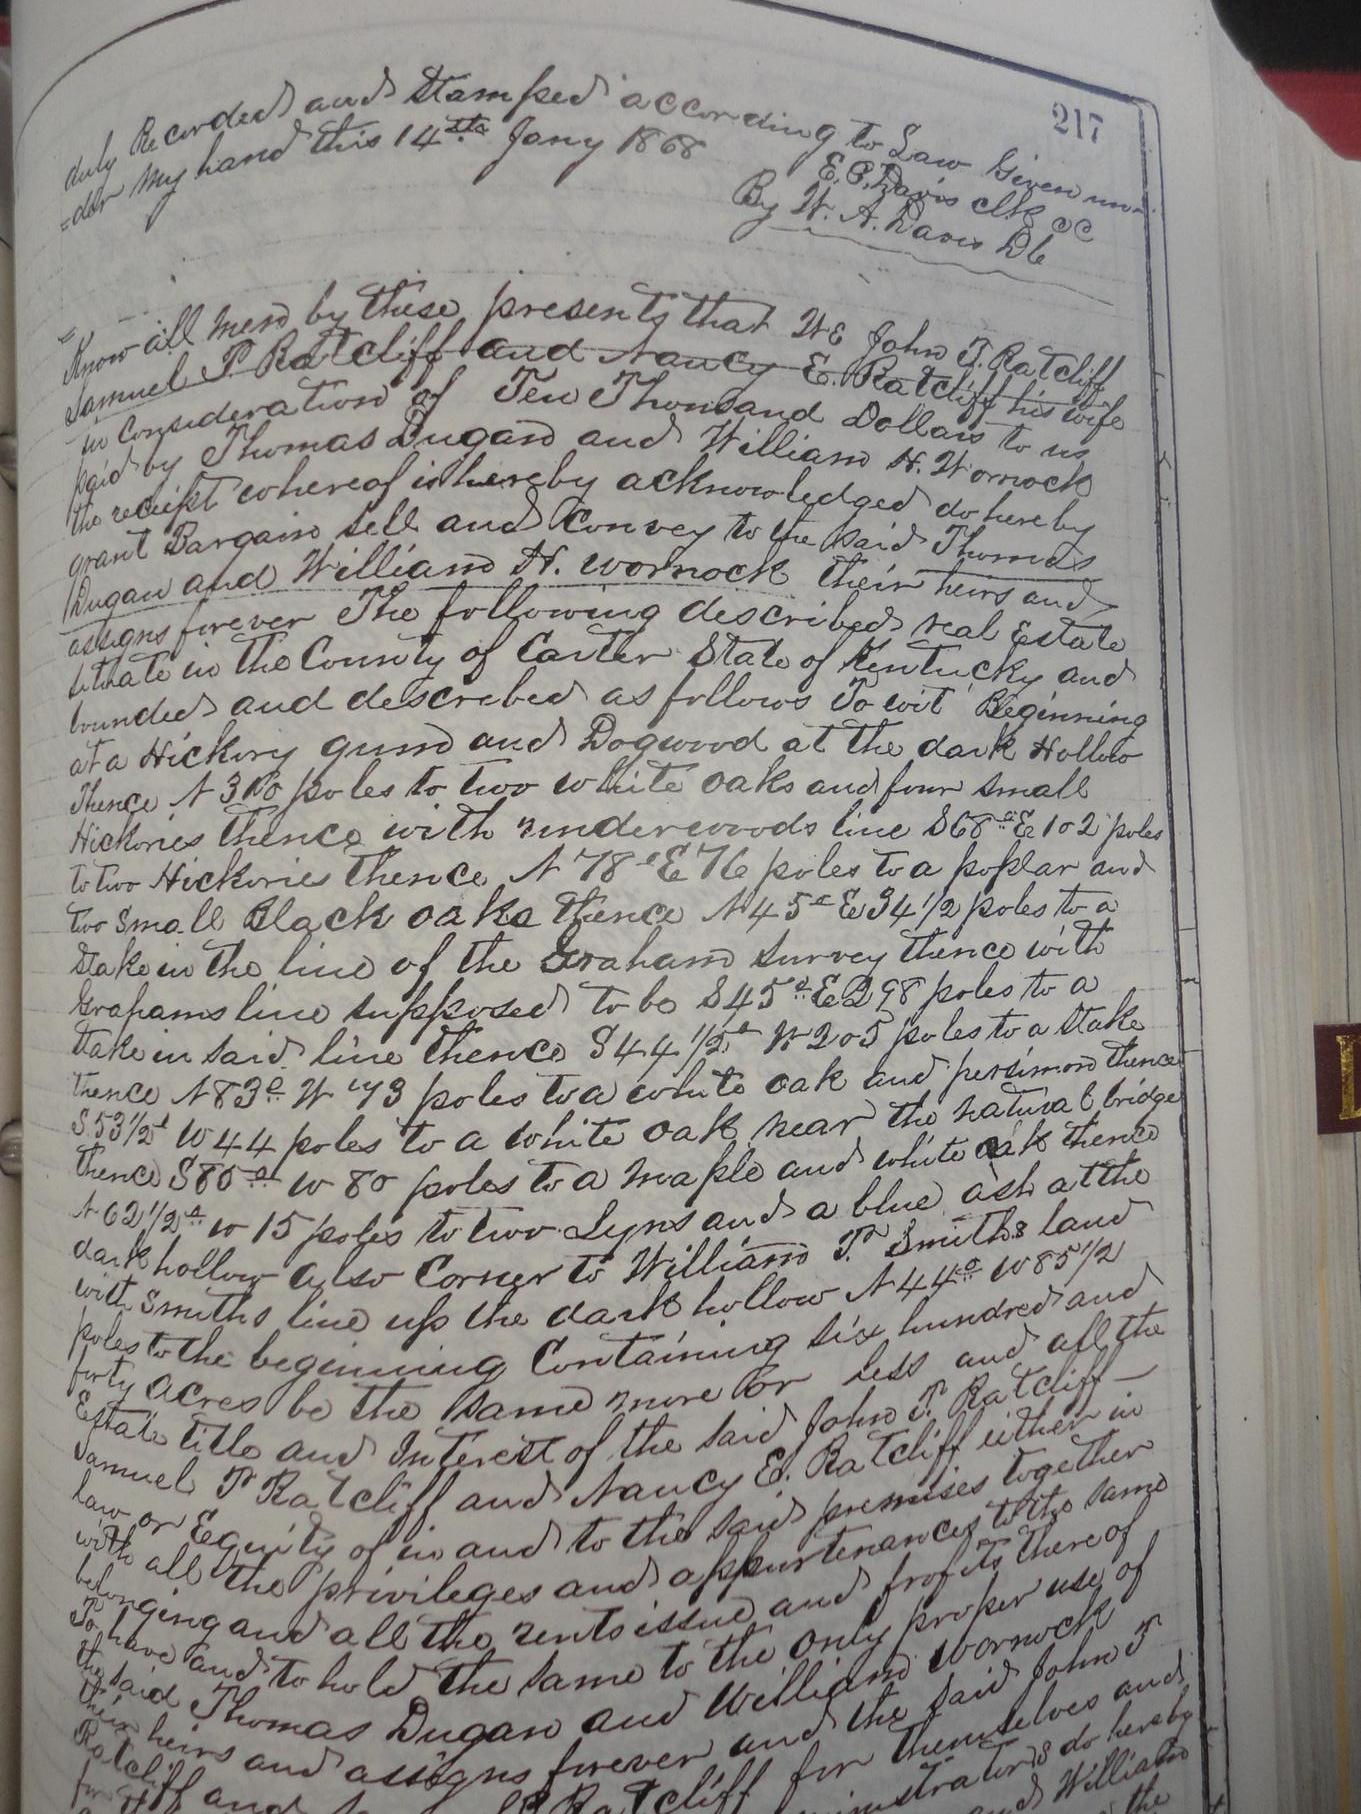 217
duly Recorded and Stamped according to Law Given un-
=der my hand this 14th Jany 1868
E. B. Davis Clk CC
By W. A. Davis DC
Know all men by these presents that We John T. Ratcliff
Samuel P Ratcliff and Nancy E. Ratcliff his wife
in consideration of Ten Thousand Dollars to us
paid by Thomas Dugan and William H. Wornock
the receipt whereof is hereby acknowledged do hereby
grant Bargain Sell and Convey to the said Thomas
Dugan and William H. Wornock their heirs and
assigns forever The following described real Estate
situate in the County of Carter State of Kentucky and
bounded and described as follows To wit Beginning
at a Hickory gum and Dogwood at the dark Hollow
Thence N poles to two white oaks and four small
Hickories thence with underwoods line S68d E 102 poles
to two Hickories thence N 78d E 76 poles to a poplar and
two small Black oaks thence N45d E 34 1/2 poles to a
Stake in the line of the Graham Survey thence with
Grahams line supposed to be S45d E 298 poles to a
Stake in said line thence S44 1/2d W 205 poles to a Stake
thence N83d W 43 poles to a white oak and persimon thence
S.53 1/2d W 44 poles to a white oak near the natural bridge
thence S80d W 80 poles to a maple and white oak thence
N62 1/2d W 15 poles to two Lyns and a blue ash at the
dark hollow also Corner to William T. Smiths land
with Smiths line up the dark hollow N44d W 85 1/2
poles to the beginning Containing six hundred and
forty acres be the same more or less and all the
Estate title and Interest of the said John T. Ratcliff —
Samuel P Ratcliff and Nancy E. Ratcliff either in
law or Equity of in and to the said premises together
with all the privileges and appurtenances to the same
belonging and all the rents issue and profits there of
To have and to hold the same to the only proper use of
the said Thomas Dugan and William Wornock
their heirs and assigns forever and the said John T
Ratcliff and Ratcliff for themselves and
do hereby
and William
the